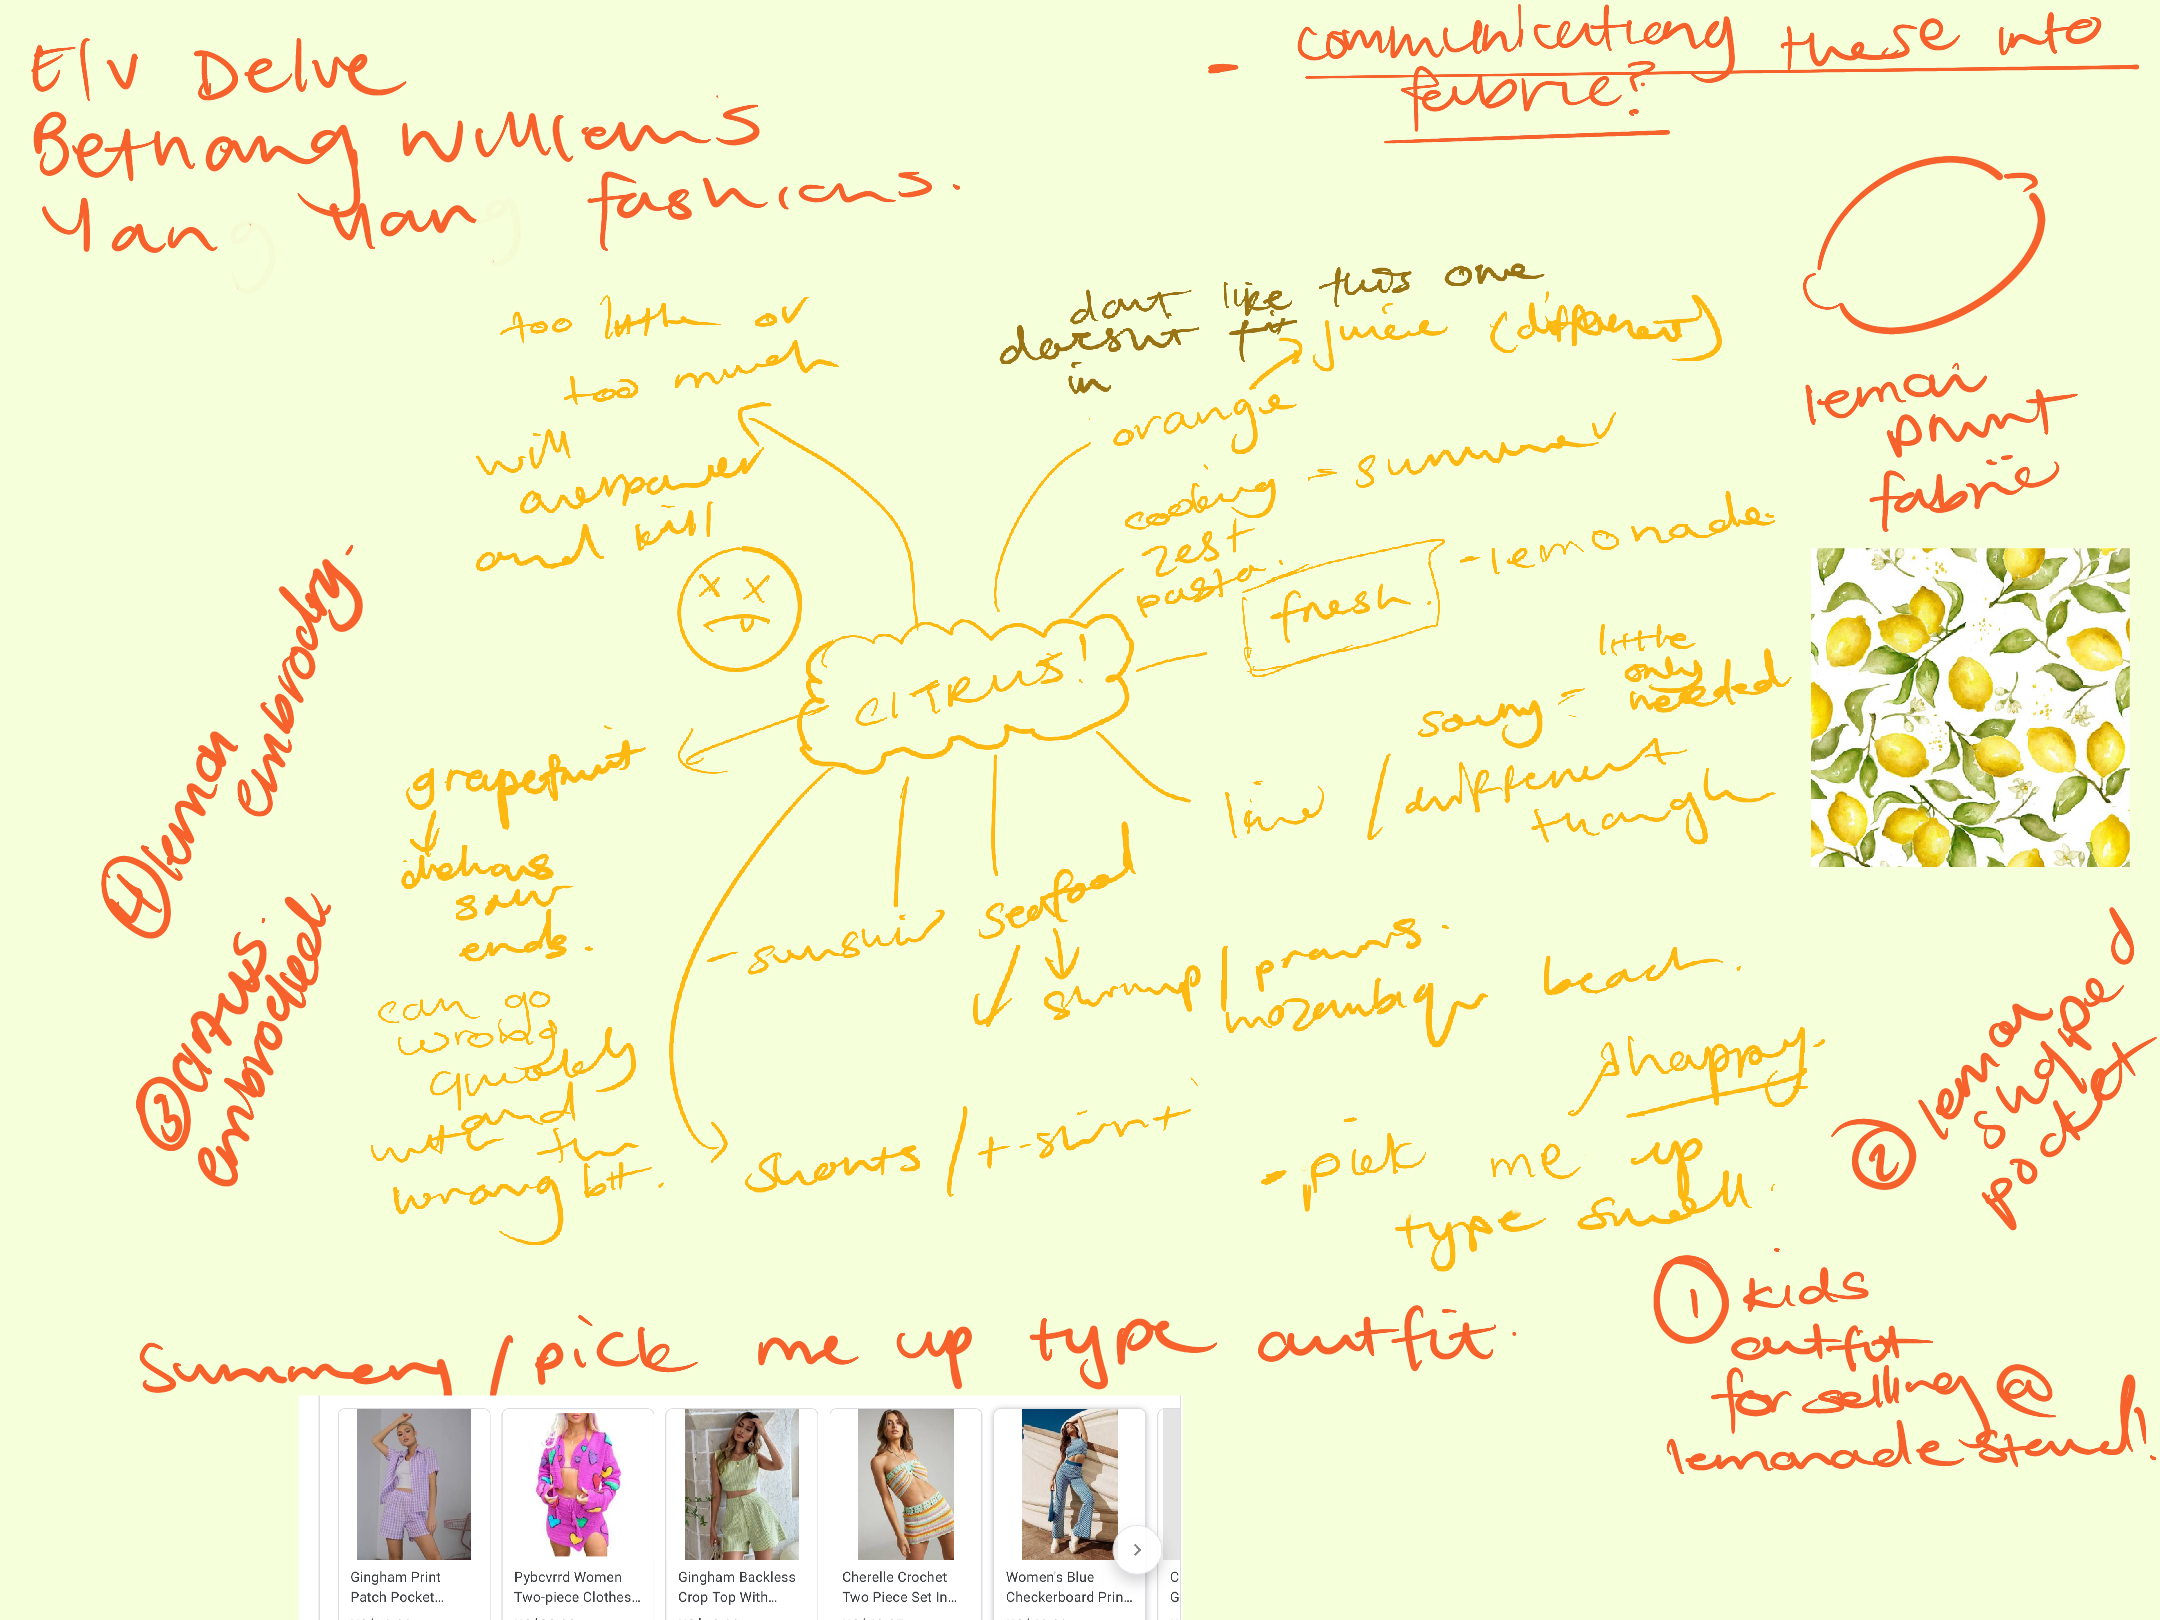 Elv Delve
Bethang Williems
Yang Yang fashions.
- communicationg these into
fabric?
too little or
too much
will
overpower
and kill
dont like this one
doesnt fit
in
juice (different)
orange
cooking = summer
zest
pasta.
fresh.
- lemonade.
lemon
print
fabric
CITRUS!
little
only
needed
soury =
lime / different
though
grapefruit
sour
ends.
can go
wrong
quickly
and
with the
wrong bit.
- sunshine
seafood
shrimp / prawns.
mozambique beach.
shorts / t-shirt
happy.
- pick me up
type smell.
④ lemon
embrodry.
③ citrus
embrodied
② lemon
shaped
pocket
① kids
outfit
for selling @
lemonade stand!
Summery / pick me up type outfit.
Gingham Print
Patch Pocket...
Pybcvrrd Women
Two-piece Clothes...
Gingham Backless
Crop Top With...
Cherelle Crochet
Two Piece Set In...
Women's Blue
Checkerboard Prin...
C
G